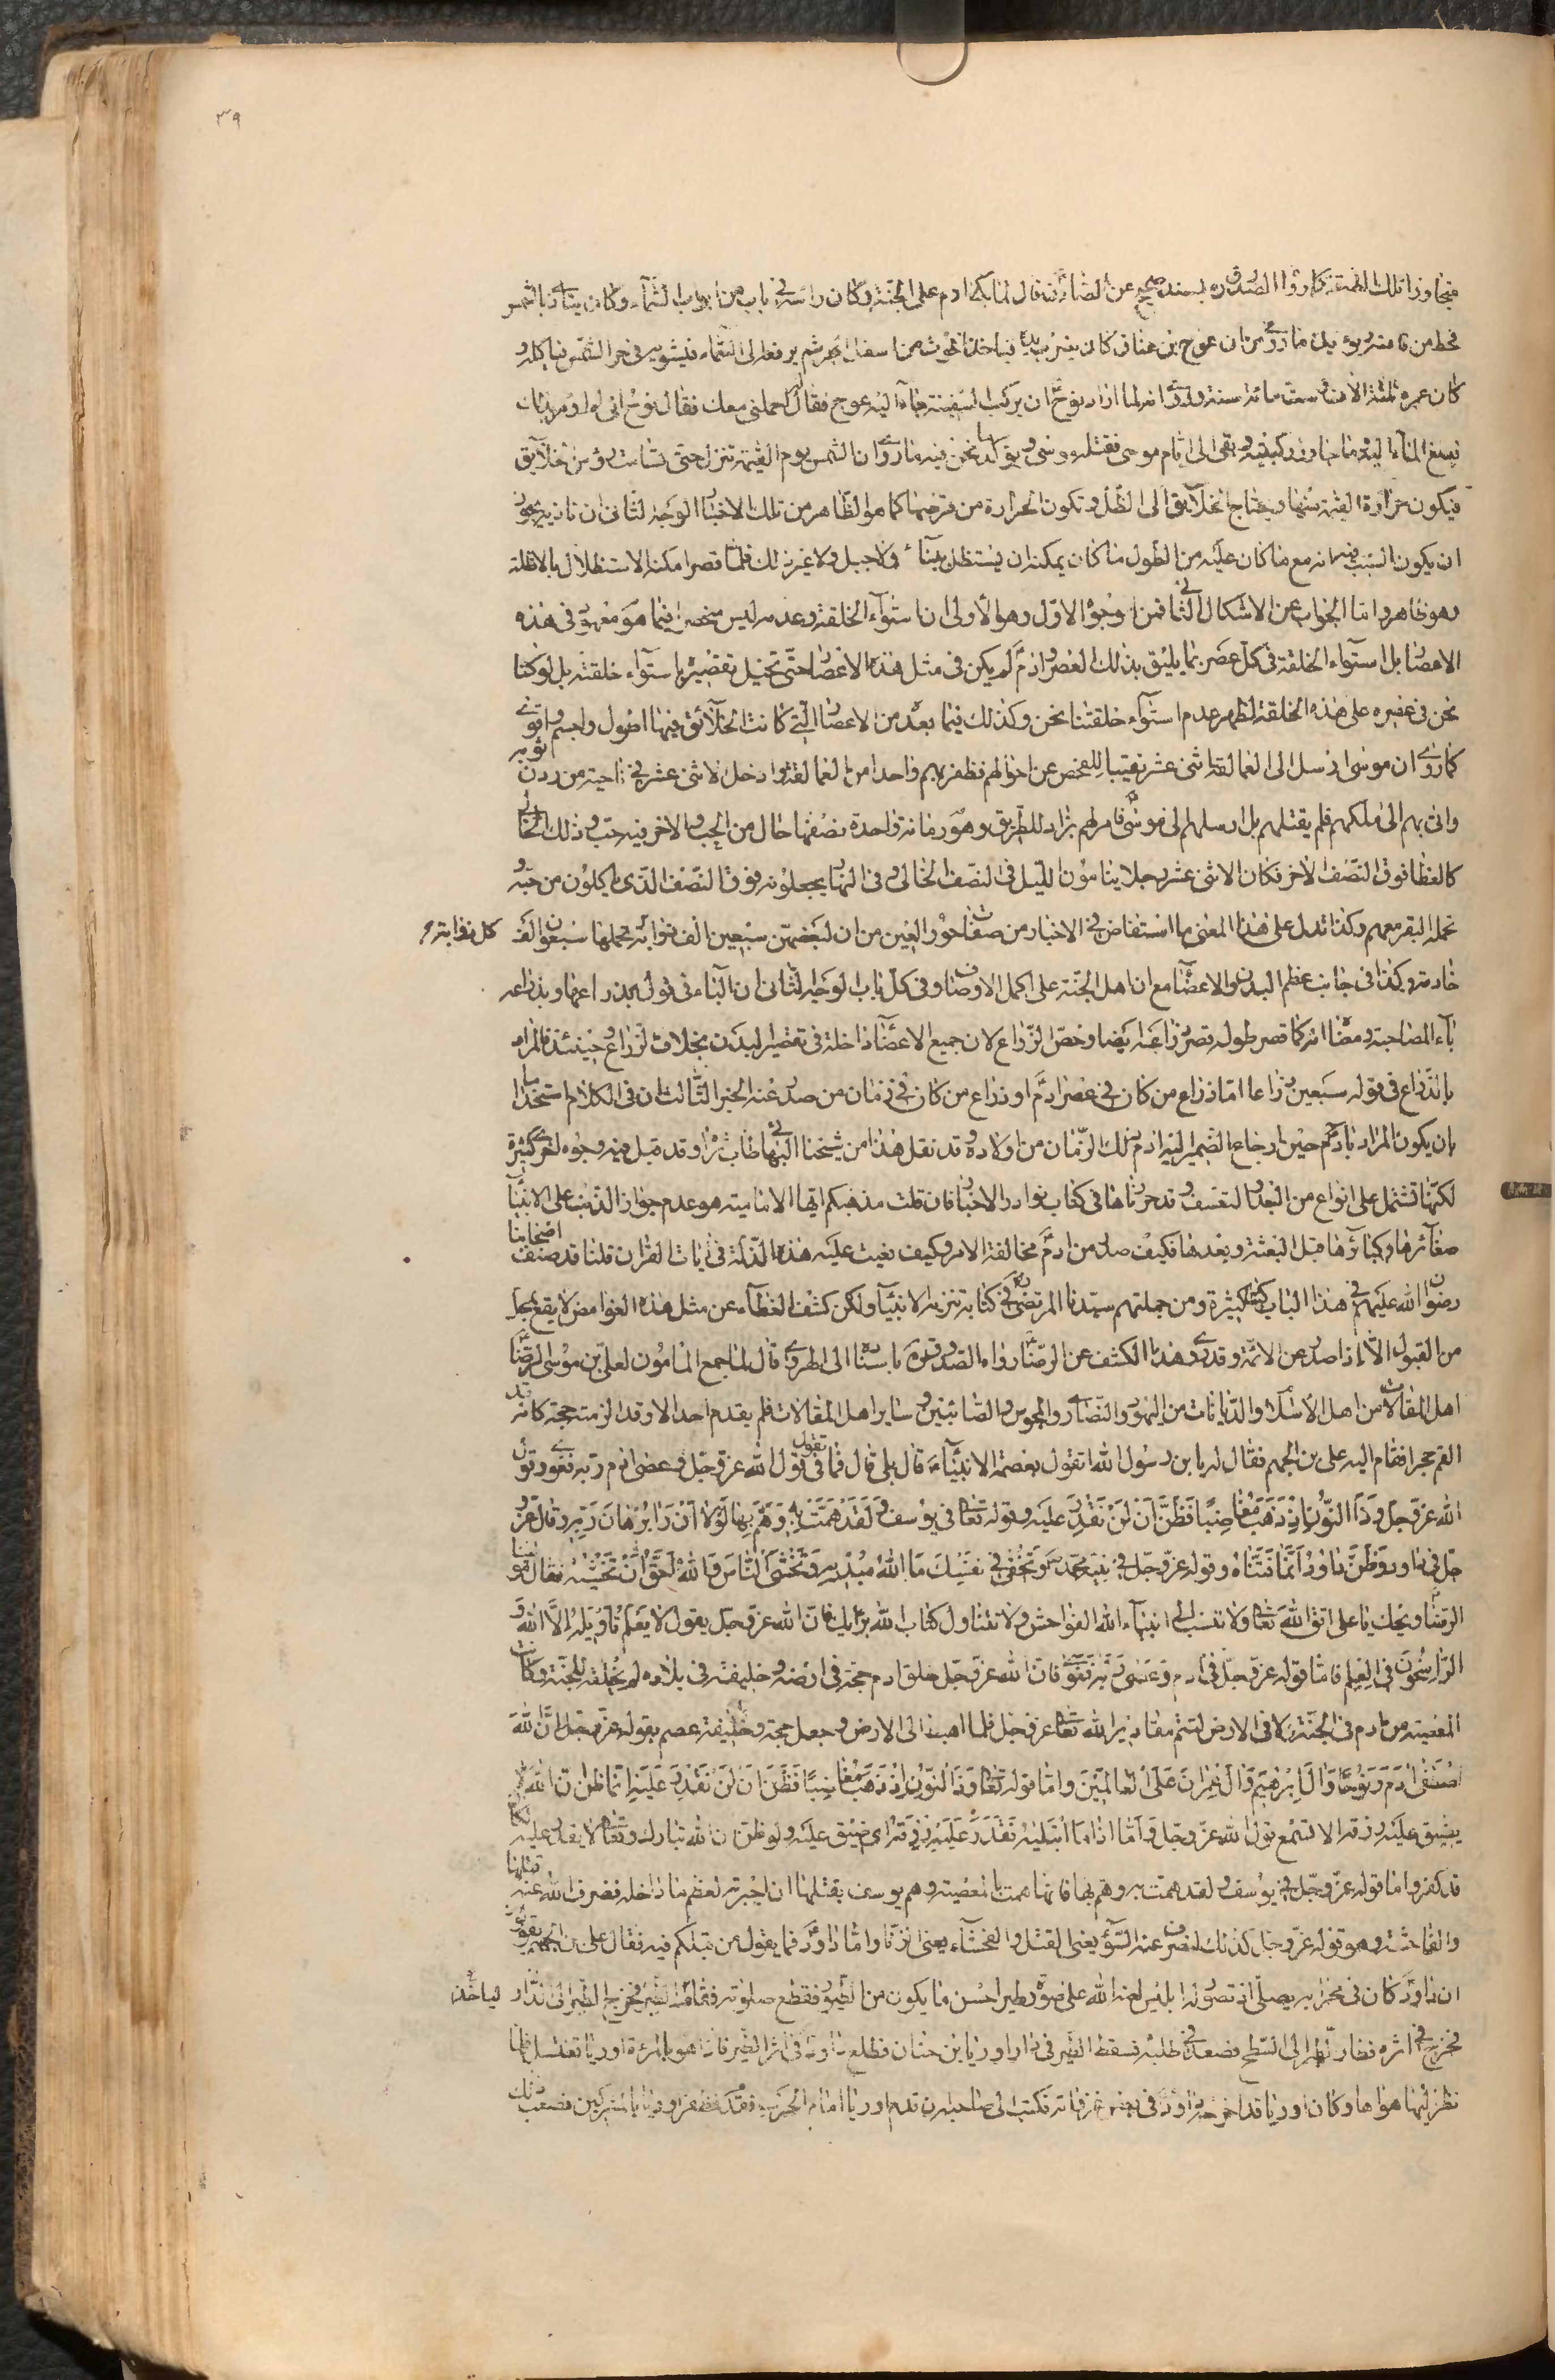 ٣٩
فيجاوز تلك الطبقة كما رواه الصدوق ره بسند صحيح عن الصادق ع انه قال لما بكى ادم على الجنة وكان راسه في باب من ابواب السماء وكان يتاذى بالشمس
فحط من قامته ويؤيده ما روى من ان عوج بن عناق كان يضرب بيده فياخذ الحوت من اسفل البحر ثم يرفعه الى السماء فيشويه في حر الشمس فياكله و
كان عمره ثلثة الاف وست مائة سنة وروى انه لما اراد نوح ع ان يركب السفينة جاء اليه عوج فقال له احملني معك فقال نوح اني لم اومر بذلك
فبلغ الماء اليه وما جاوز ركبتيه وبقى الى ايام موسى فقتله موسى ويؤيد ما نحن فيه ما روى ان الشمس يوم القيمة تنزل حتى تسامت رؤس الخلايق
فيكون حرارة القيمة منها ويحتاج الخلايق الى الظل وتكون الحرارة من قرصها كما هو الظاهر من تلك الاخبار الوجه الثاني ان تاذيه يجوز
ان يكون السبب فيه انه مع ما كان عليه من الطول ما كان يمكنه ان يستظل ببناء ولا جبل ولا غير ذلك فلما قصر امكنه الاستظلال بالاظلة
وهو ظاهر واما الجواب عن الاشكال الثاني فمن وجوه الاول وهو الاولى ان استواء الخلقة وعدمه ليس منحصرا فيما هو معهود في هذه
الاعصار بل استواء الخلقة في كل عصر بما يليق بذلك العصر وادم ع لم يكن في مثل هذه الاعصار حتى تخيل تقصيره باستواء خلقته بل لو كنا
نحن في عصره على هذه الخلقة لظهر عدم استواء خلقتنا نحن وكذلك فيما بعده من الاعصار التي كانت الخلائق فيها اطول واجسم واقوى
كما روى ان موسى ارسل الى العمالقة اثنى عشر نقيبا للفحص عن احوالهم فظفر بهم واحد من العمالقة وادخل الاثنى عشر في ناحية من ردن ثوبه
واتى بهم الى ملكهم فلم يقتلهم بل ارسلهم الى موسى ع وامر لهم بزاد للطريق وهو رمانة واحدة نصفها خال من الحب والاخر فيه حب وذلك الخالي
كالغطا فوق النصف الاخر فكان الاثنى عشر رجلا ينامون الليل في النصف الخالي وفي النهار يجعلونه فوق النصف الذي ياكلون من حبه و
تحمله البقر معهم وكذا تدل على هذا المعنى ما استفاض في الاخبار من صفات حور العين من ان لبعضهن سبعين الف ذؤابة تحملها سبعون الف كل ذؤابة
خادمة وكذا في جانب عظم البدن والاعضاء مع ان اهل الجنة على اكمل الاوصاف وفي كل باب الوجه الثاني ان الباء في قوله بذراعها وبذراعه
باء المصاحبة ومعناه انه كما قصر طوله قصر ذراعه ايضا وخص الذراع لان جميع الاعضاء داخلة في تقصير البدن بخلاف الذراع حينئذ فالمراد
بالذراع في قوله سبعين ذراعا اما ذراع من كان في عصر ادم ع او ذراع من كان في زمان من صدر عنه الخبر الثالث ان في الكلام استخداما
بان يكون المراد بادم حين ارجاع الضمير اليه ادم ذلك الزمان من اولاده وقد نقل هذا من شيخنا البهائي طاب ثراه وقد قيل فيه وجوه اخرى كثيرة
لكنها تشتمل على انواع من البعد والتعسف وقد حررناها في كتاب نوادر الاخبار فان قلت مذهبكم ايها الامامية هو عدم جواز الذنب على الانبياء
صغائرها وكبائرها قبل البعثة وبعدها فكيف صدر من ادم ع مخالفة الامر وكيف نعيت عليه هذه الذلة في ايات القران قلنا قد صنف اصحابنا
رضوان الله عليهم في هذا الباب كتبا كثيرة ومن جملتهم سيدنا المرتضى ره في كتابه تنزيه الانبياء ولكن كشف الغطاء عن مثل هذه الغوامض لا يقع بمحل
من القبول الا اذا صدر عن الائمة وقد روى هذا الكشف عن الرضا ع رواه الصدوق ره باسناده الى الهروي قال لما جمع المامون لعلي بن موسى الرضا ع
اهل المقالات من اهل الاسلام والديانات من اليهود والنصارى والمجوس والصابئين وساير اهل المقالات فلم يقدم احد الا وقد الزمته حجته كانه قد
القم حجرا فقام اليه علي بن الجهم فقال له يا بن رسول الله اتقول بعصمة الانبياء قال بلى قال فما تقول في قول الله عز وجل وعصى ادم ربه فغوى وقول
الله عز وجل وَذَا النُّونِ إِذْ ذَهَبَ مُغَاضِبًا فَظَنَّ أَنْ لَنْ نَقْدِرَ عَلَيْهِ وقوله تعالى في يوسف وَلَقَدْ هَمَّتْ بِهِ وَهَمَّ بِهَا لَوْلَا أَنْ رَأى بُرْهَانَ رَبِّهِ وقال عز و
جل في داود وَظَنَّ دَاوُدُ أَنَّمَا فَتَنَّاهُ وقوله عز وجل في نبيه محمد ص وَتُخْفِي فِي نَفْسِكَ مَا اللهُ مُبْدِيهِ وَتَخْشَى النَّاسَ وَاللهُ أَحَقُّ أَنْ تَخْشَاهُ فقال مولانا
الرضا ع ويحك يا علي اتق الله تعالى ولا تنسب الى انبياء الله الفواحش ولا تتناول كتاب الله برايك فان الله عز وجل يقول لا يَعْلَمُ تَأْوِيلَهُ إِلَّا اللهُ وَ
الرَّاسِخُونَ فِي الْعِلْمِ فاما قوله عز وجل في ادم وَعَصى آدَمُ رَبَّهُ فَغَوى فان الله عز وجل خلق ادم حجة في ارضه وخليفة في بلاده لم يخلقه للجنة وكانت
المعصية من ادم في الجنة لا في الارض لتتم مقادير الله تعالى عز وجل فلما اهبط الى الارض وجعل حجة وخليفة عصم بقوله عز وجل إِنَّ اللهَ
اصْطَفَى آدَمَ وَنُوحًا وَآلَ إِبْرَاهِيمَ وَآلَ عِمْرَانَ عَلَى الْعَالَمِينَ واما قوله تعالى وَذَا النُّونِ إِذْ ذَهَبَ مُغَاضِبًا فَظَنَّ أَنْ لَنْ نَقْدِرَ عَلَيْهِ انما ظن ان الله لا
يضيق عليه رزقه الا تسمع قول الله عز وجل وَأَمَّا إِذَا مَا ابْتَلَاهُ فَقَدَرَ عَلَيْهِ رِزْقَهُ اى ضيق عليه ولو ظن ان الله تبارك وتعالى لا يقدر عليه لكان
قد كفر واما قوله عز وجل في يوسف ولقد همت به وهم بها فانها همت بالمعصية وهم يوسف بقتلها ان اجبرته لعظم ما داخله فصرف الله عنه قتلها
والفاحشة وهو قوله عز وجل كذلك لنصرف عنه السوء يعني القتل والفحشاء يعني الزنا واما داود ع فما يقول من قبلكم فيه فقال علي بن الجهم يقولون
ان داود ع كان في محرابه يصلي اذ تصور له ابليس لعنه الله على صورة طير احسن ما يكون من الطيور فقطع صلوته فقام لياخذ الطير فخرج الطير الى الدار
فخرج في اثره فطار الطير الى السطح فصعد في طلبه فسقط الطير في دار اوريا بن حنان فطلع داود في اثر الطير فاذا هو بامرءة اوريا تغتسل فلما
نظر اليها هواها وكان اوريا قد اخرجه داود في بعض غزواته فكتب الى صاحبه ان قدم اوريا امام الحرب فقدم فظفر اوريا بالمشركين فصعب ذلك